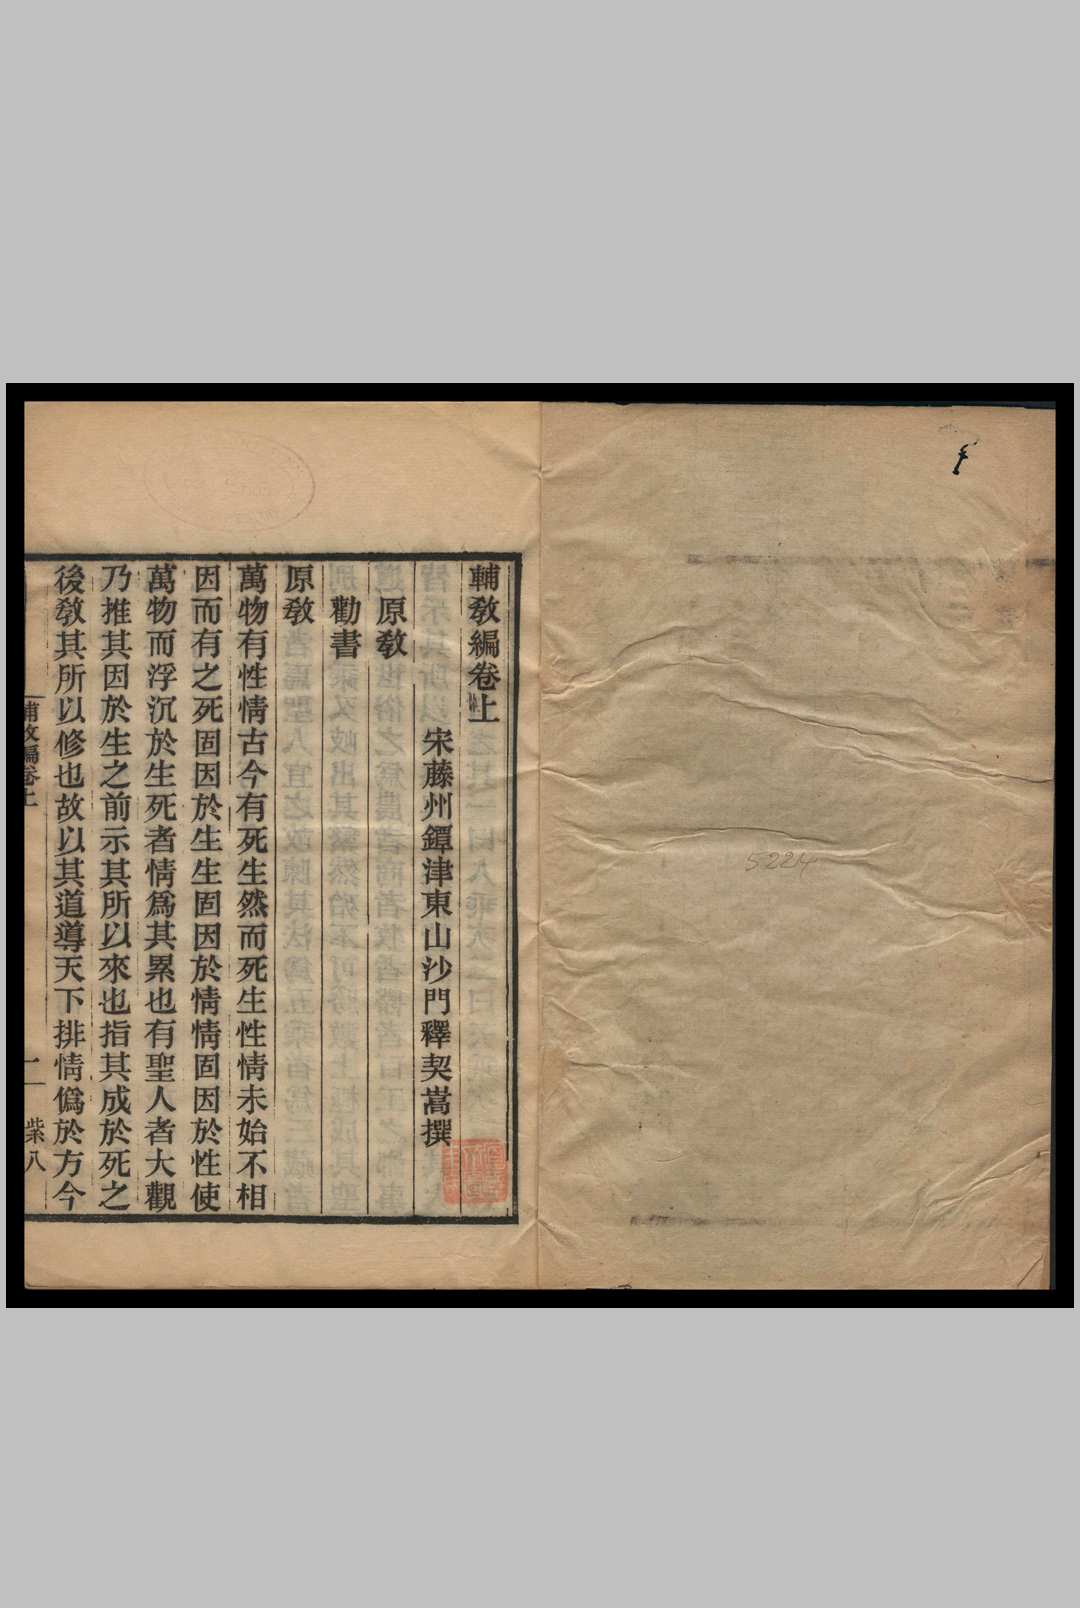 5224
輔教編卷上
宋藤州鐔津東山沙門釋契嵩撰
原教
勸書
原教
萬物有性情古今有死生然而死生性情未始不相
因而有之死固因於生生固因於情情固因於性使
萬物而浮沉於生死者情爲其累也有聖人者大觀
乃推其因於生之前示其所以來也指其成於死之
後教其所以修也故以其道導天下排情僞於方今
輔教編卷上
一
紫八